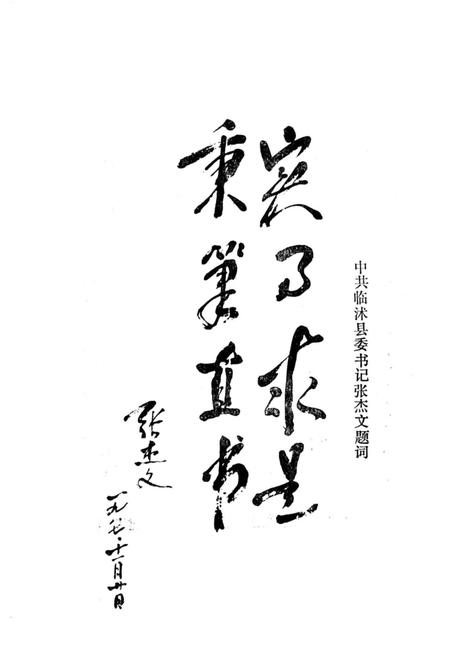 中共临沭县委书记张杰文题词
实事求是
秉笔直书
张杰文
一九八七·十一月廿日